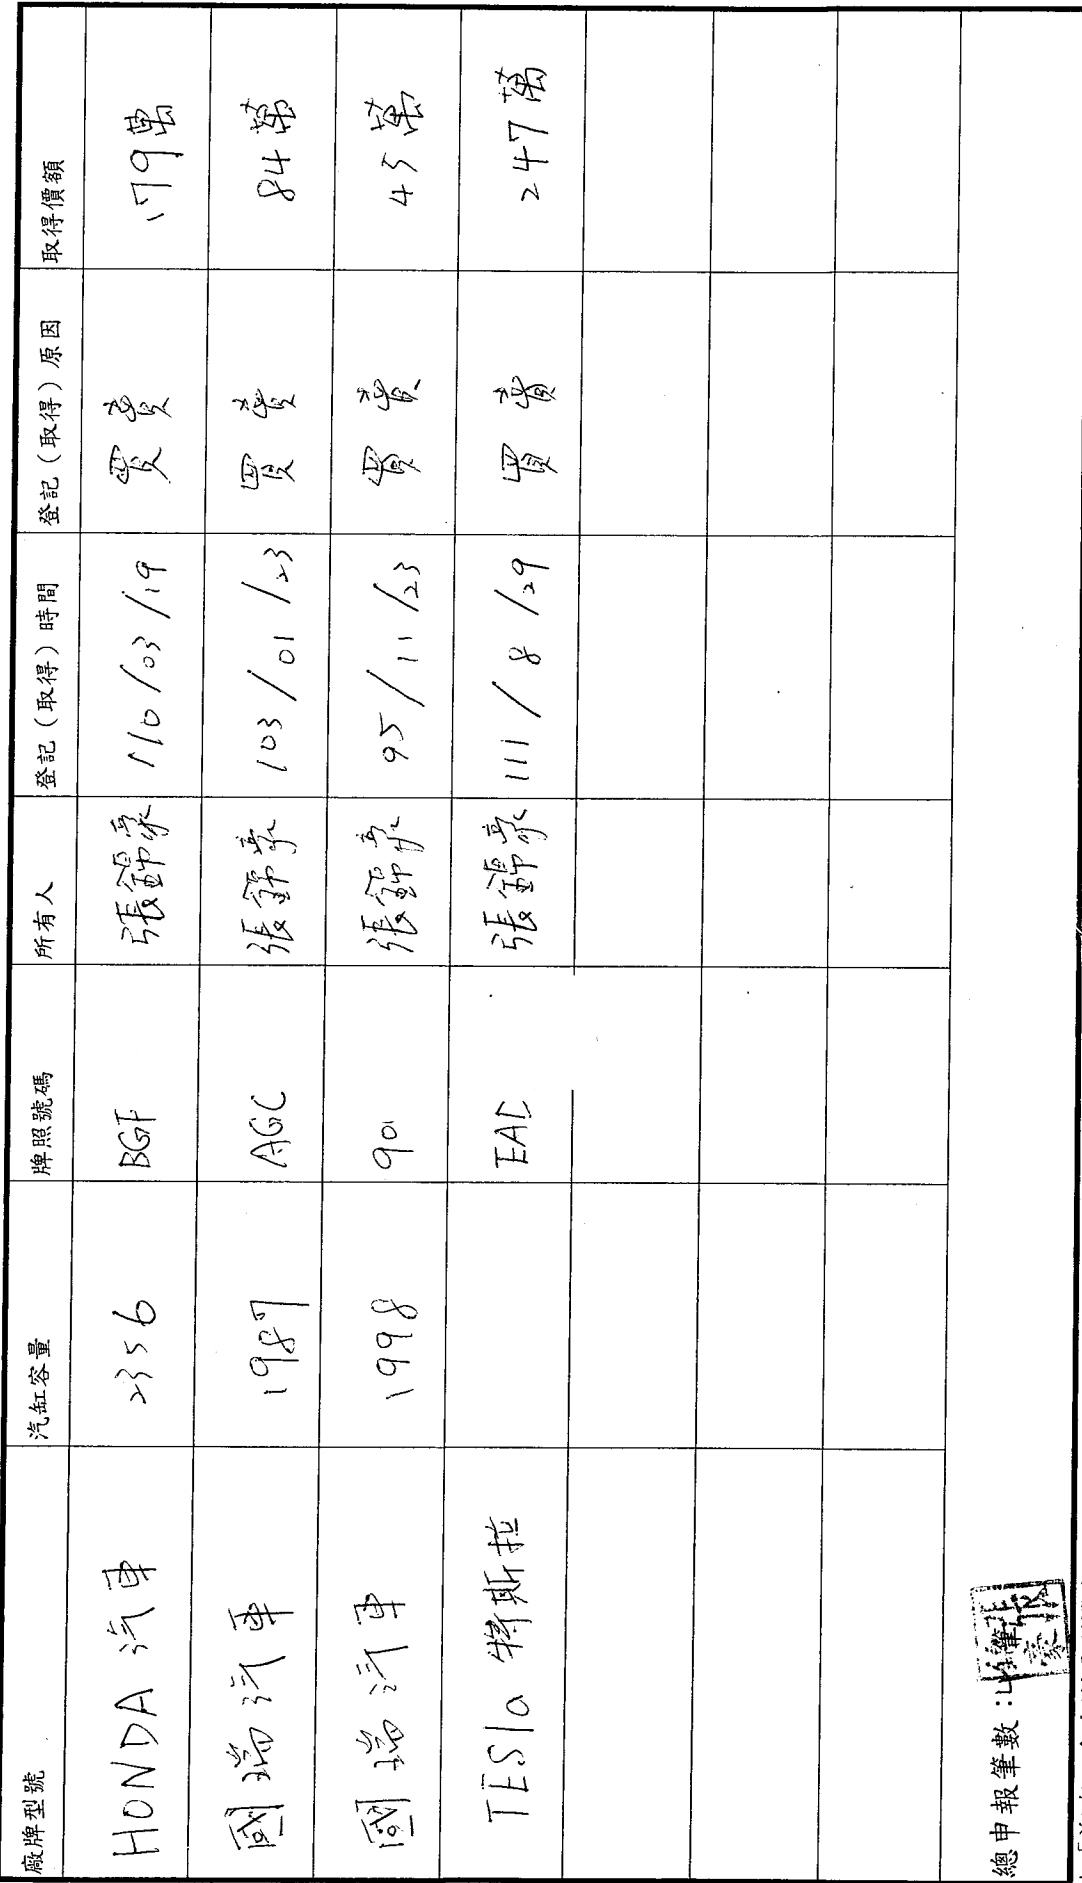 廠牌型號 汽缸容量 牌照號碼 所有人 登記（取得）時間 登記（取得）原因 取得價額
HONDA 汽車 2356 BGF 張錦豪 110/03/19 買賣 179萬
國瑞汽車 1987 AGC 張錦豪 103/01/23 買賣 84萬
國瑞汽車 1998 901 張錦豪 95/11/23 買賣 45萬
TESla 特斯拉 EAD 張錦豪 111/8/29 買賣 247萬
總申報筆數：4筆